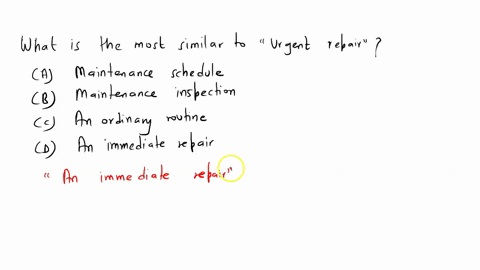 What is the most similar to "Urgent repair"?
(A) Maintenance schedule
(B) Maintenance inspection
(C) An ordinary routine
(D) An immediate repair
" An immediate repair"